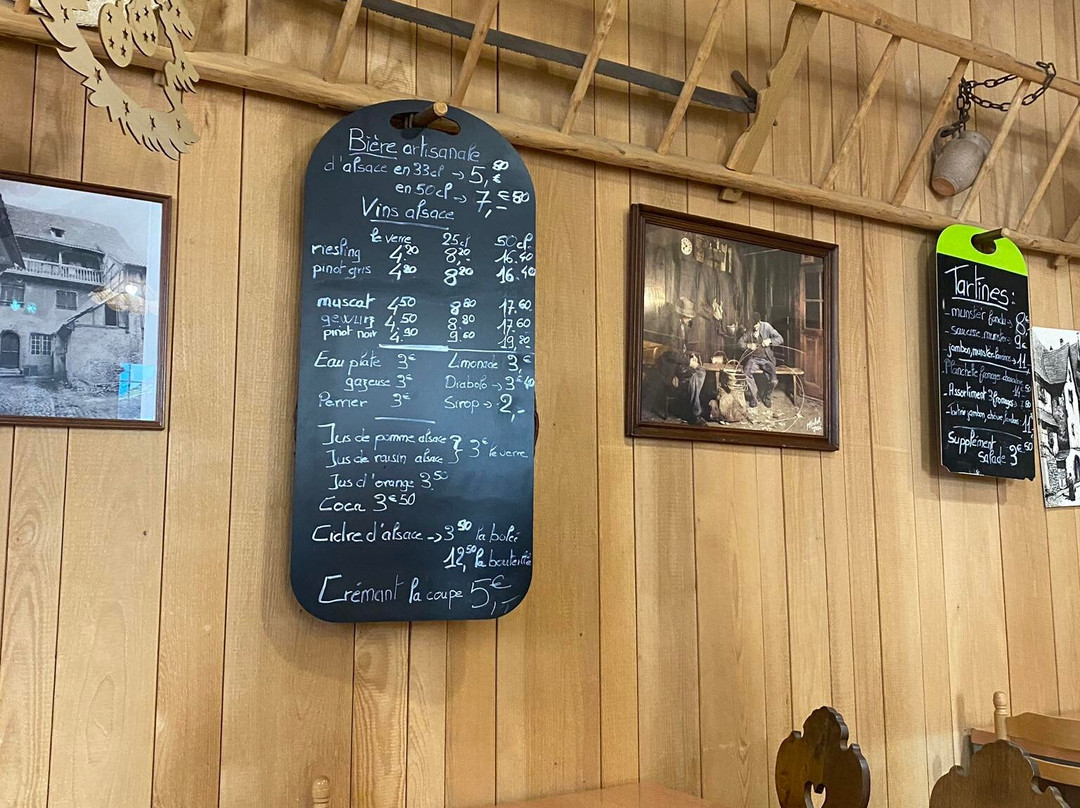 Bière artisanale
d'alsace en 33cl → 5,80 €
en 50cl → 7,€80
Vins alsace
le verre 25cl 50cl
riesling 4,20 8,20 16.40
pinot gris 4,20 8,20 16.40
muscat 4,50 8.80 17.60
gewurz 4,50 8.80 17.60
pinot noir 4.90 9.60
Eau plate 3€ Limonade 3,€
gazeuse 3€ Diabolo → 3€40
Perrier 3€ Sirop → 2,-
Jus de pomme alsace
Jus de raisin alsace } 3€ le verre
Jus d'orange 3,50
Coca 3€50
Cidre d'alsace → 3,50 la bolée
12,50 la bouteille
Crémant la coupe 5€
Tartines:
- munster fondu → 8€
- saucisse, munster → 9€
jambon, munster
Planchette fromage
- Assortiment 3 fromages
- Tartine jambon, chèvre
Supplément
salade 3€50